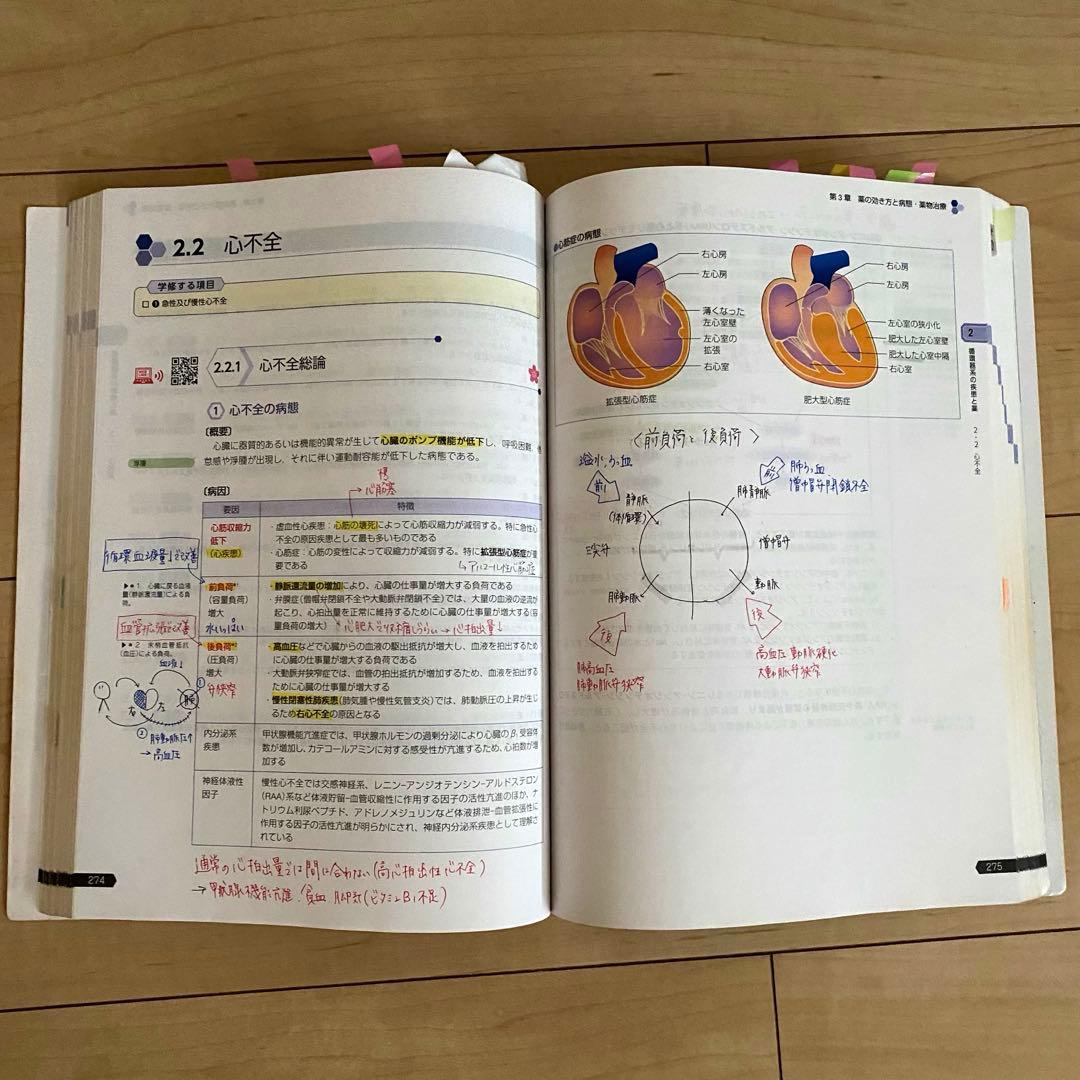 2.2 心不全
学修する項目
□ ❶ 急性及び慢性心不全
2.2.1 心不全総論
1 心不全の病態
〔概要〕
心臓に器質的あるいは機能的異常が生じて心臓のポンプ機能が低下し、呼吸困難、
怠感や浮腫が出現し、それに伴い運動耐容能が低下した病態である。
浮腫
心筋塞
〔病因〕
要因 特徴
心筋収縮力
低下
(心疾患)
・虚血性心疾患：心筋の壊死によって心筋収縮力が減弱する。特に急性心
不全の原因疾患として最も多いものである
・心筋症：心筋の変性によって収縮力が減弱する。特に拡張型心筋症が重
要である
→アルコール性心筋症
循環血液量↓で改善
▶*1 心臓に戻る血液
量(静脈還流量)による負
荷。
前負荷*1
(容量負荷)
増大
水いっぱい
・静脈還流量の増加により、心臓の仕事量が増大する負荷である
・弁膜症(僧帽弁閉鎖不全や大動脈弁閉鎖不全)では、大量の血液の逆流が
起こり、心拍出量を正常に維持するために心臓の仕事量が増大する(容
量負荷の増大)
→心拍出量↓
血管拡張で改善
▶*2 末梢血管抵抗
(血圧)による負荷。
後負荷*2
(圧負荷)
増大
弁狭窄
・高血圧などで心臓からの血液の駆出抵抗が増大し、血液を拍出するため
に心臓の仕事量が増大する負荷である
・大動脈弁狭窄症では、血管の拍出抵抗が増加するため、血液を拍出する
ために心臓の仕事量が増大する
・慢性閉塞性肺疾患(肺気腫や慢性気管支炎)では、肺動脈圧の上昇が生じ
るため右心不全の原因となる
血液↓
右 左 肺
①
② 肺動脈圧↑
→高血圧
内分泌系
疾患
甲状腺機能亢進症では、甲状腺ホルモンの過剰分泌により心臓のβ₁受容体
数が増加し、カテコールアミンに対する感受性が亢進するため、心拍数が増
加する
神経体液性
因子
慢性心不全では交感神経系、レニン−アンジオテンシン−アルドステロン
(RAA)系など体液貯留−血管収縮性に作用する因子の活性亢進のほか、ナ
トリウム利尿ペプチド、アドレノメジュリンなど体液排泄−血管拡張性に
作用する因子の活性亢進が明らかにされ、神経内分泌系疾患として理解さ
れている
通常の心拍出量では間に合わない(高心拍出性心不全)
→甲状腺機能亢進、貧血、脚気(ビタミンB₁不足)
274
第3章 薬の効き方と病態・薬物治療
●心筋症の病態
右心房
左心房
薄くなった
左心室壁
左心室の
拡張
右心室
拡張型心筋症
右心房
左心房
左心室の狭小化
肥大した左心室壁
肥大した心室中隔
右心室
肥大型心筋症
〈前負荷と後負荷〉
溢水、うっ血
前
静脈
(体循環)
三尖弁
肺動脈
後
肺高血圧
肺動脈弁狭窄
前
肺うっ血
僧帽弁閉鎖不全
肺静脈
僧帽弁
動脈
後
高血圧 動脈硬化
大動脈弁狭窄
2
循環器系の疾患と薬
2・2 心不全
275